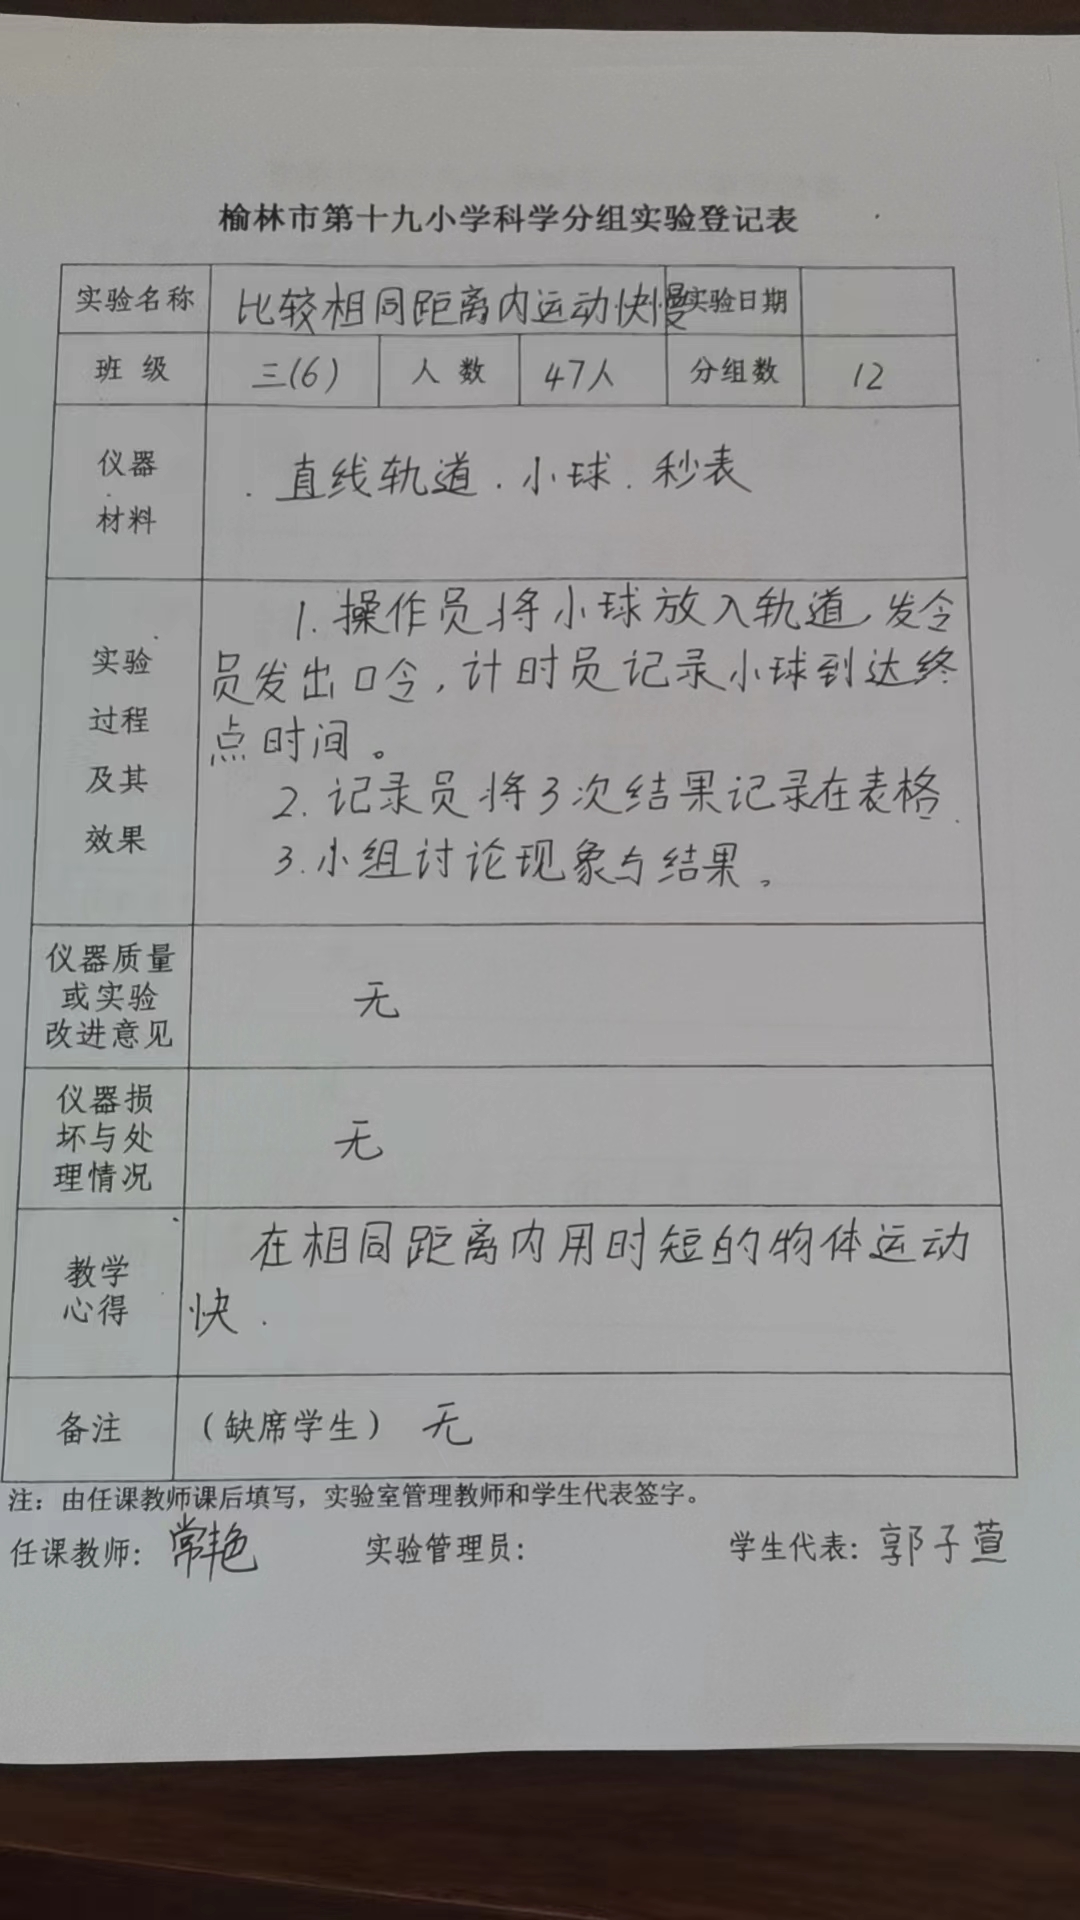 榆林市第十九小学科学分组实验登记表
实验名称 比较相同距离内运动快慢 实验日期
班 级 三(6) 人 数 47人 分组数 12
仪器
材料
直线轨道.小球.秒表
实验
过程
及其
效果
1.操作员将小球放入轨道,发令
员发出口令,计时员记录小球到达终
点时间。
2.记录员将3次结果记录在表格.
3.小组讨论现象与结果。
仪器质量
或实验
改进意见
无
仪器损
坏与处
理情况
无
教学
心得
在相同距离内用时短的物体运动
快.
备注 (缺席学生) 无
注：由任课教师课后填写，实验室管理教师和学生代表签字。
任课教师：常艳 实验管理员： 学生代表：郭子萱